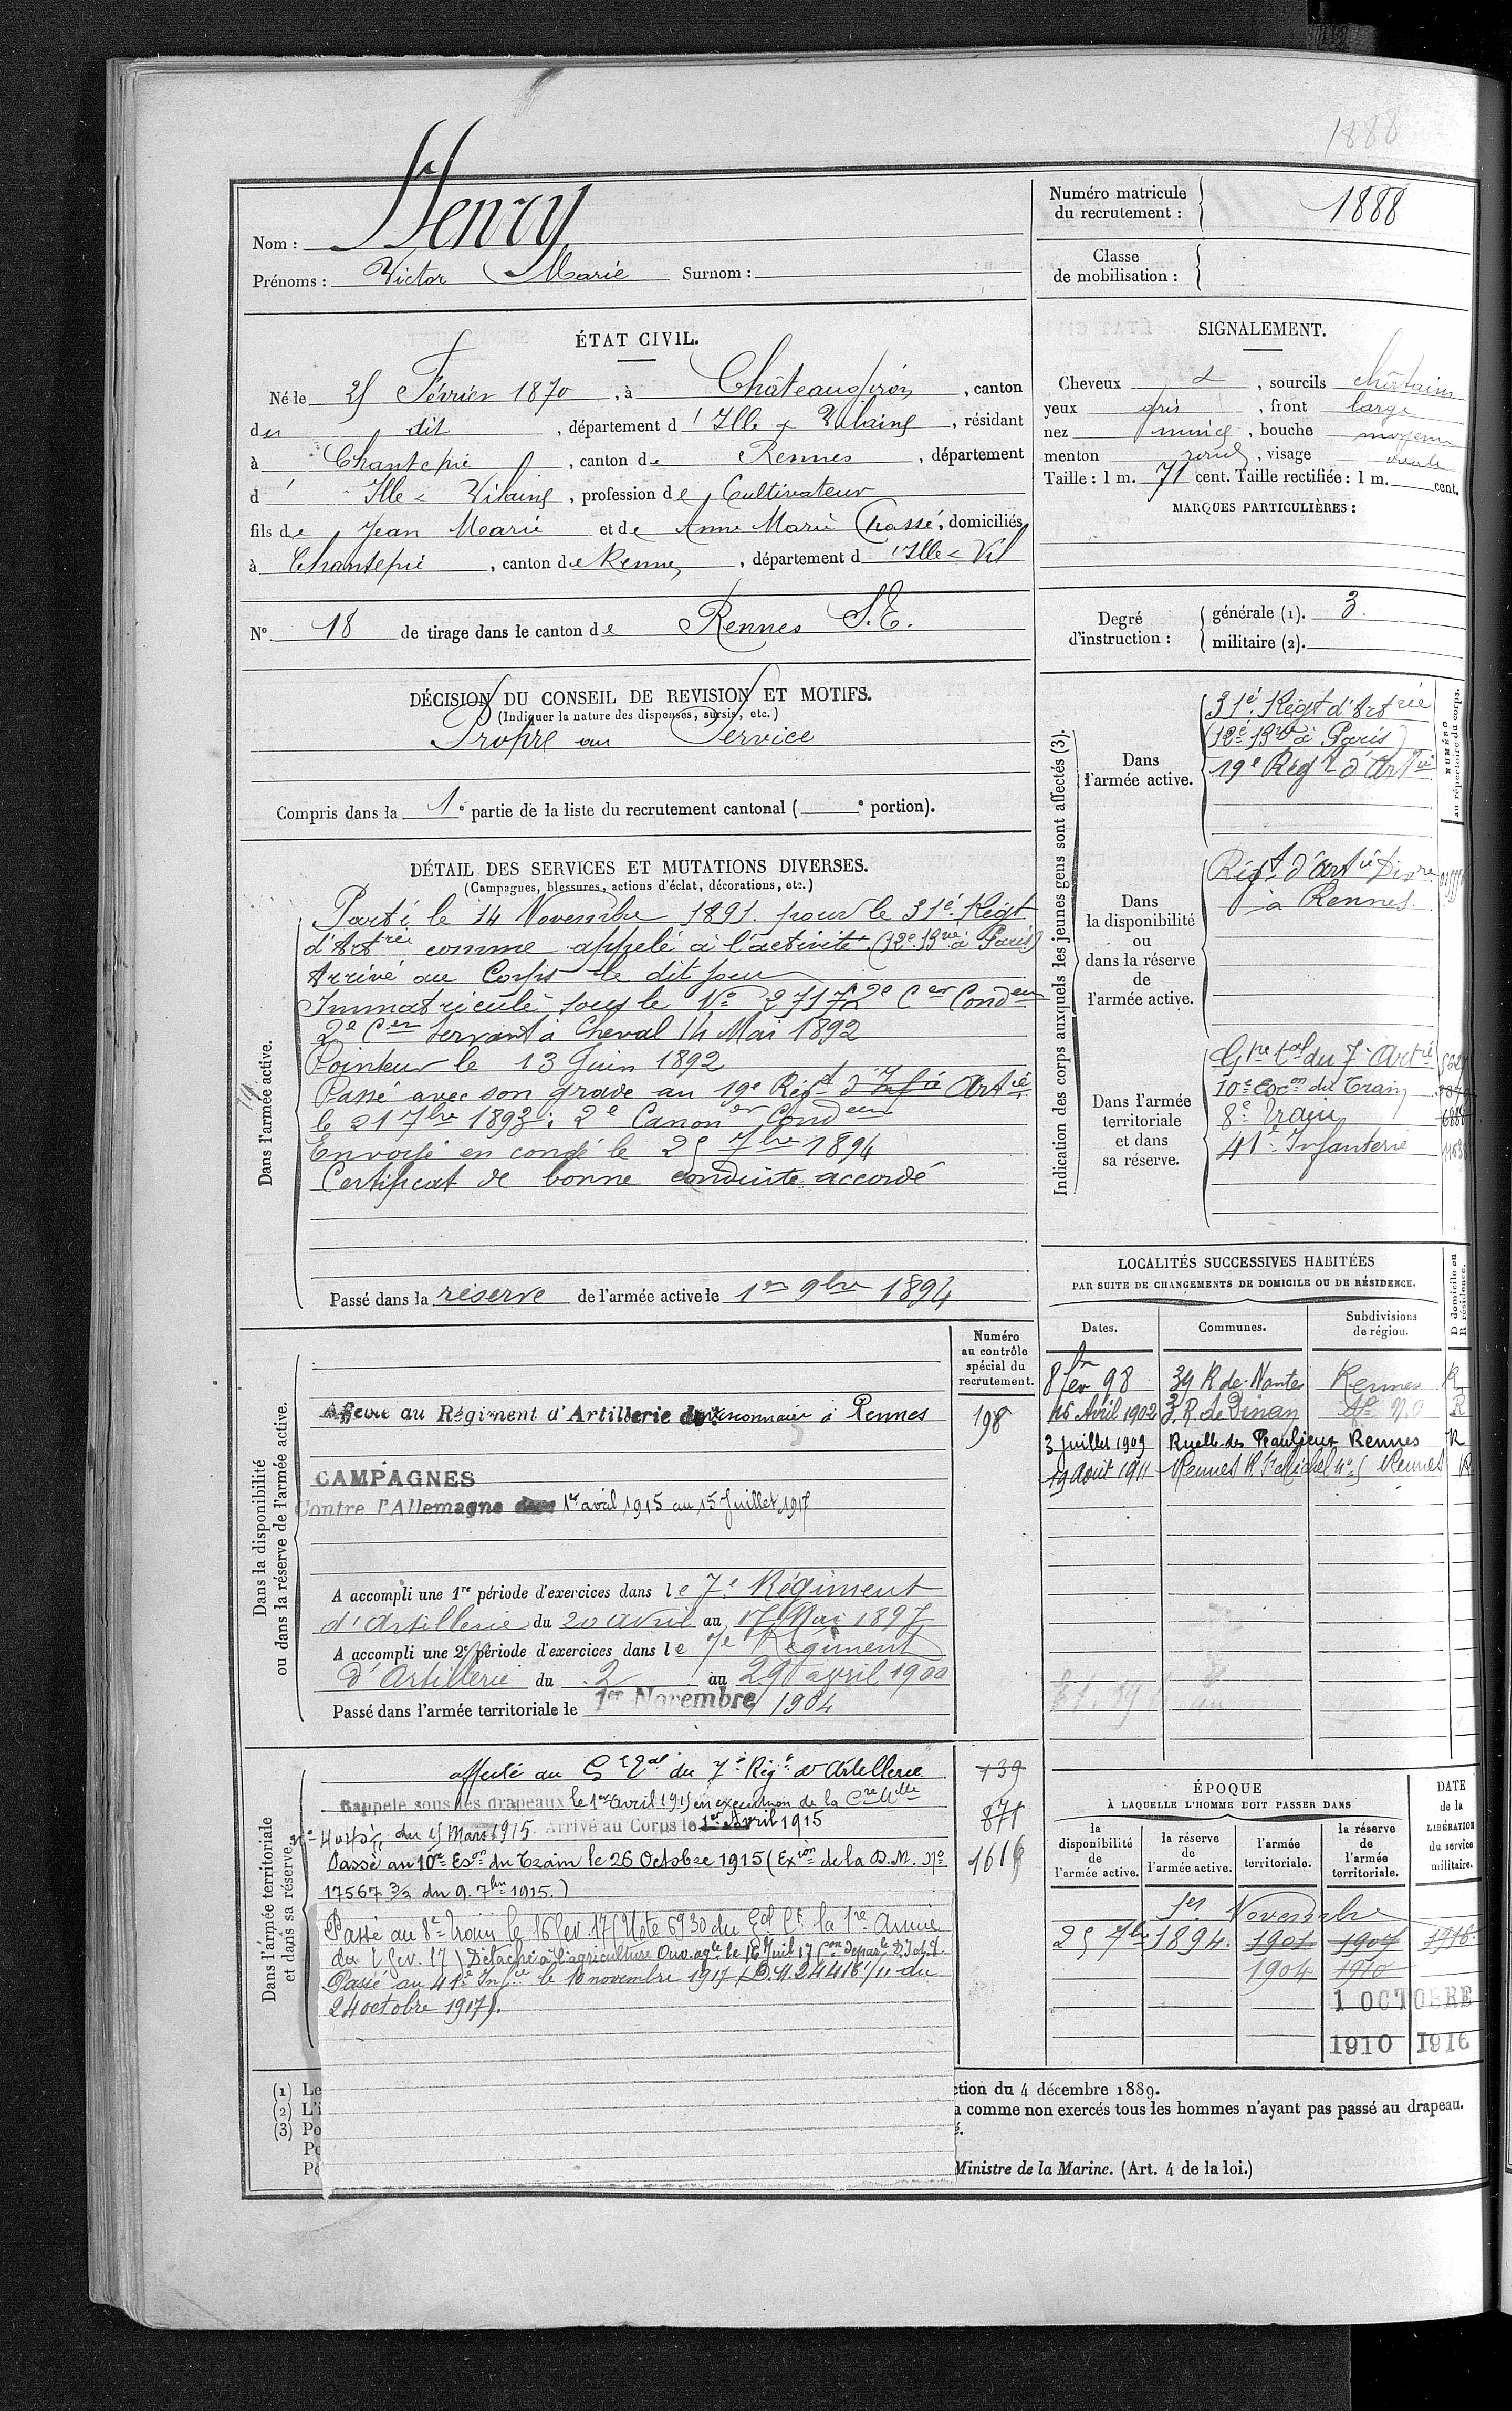 1888
Nom : Henry
Prénoms : Victor Marie Surnom :
Numéro matricule du recrutement : 1888
Classe de mobilisation :
ÉTAT CIVIL.
Né le 25 Février 1870, à Châteaugiron, canton
du dit, département d'Ille & Vilaine, résidant
à Chantepie, canton de Rennes, département
d' Ille & Vilaine, profession de Cultivateur
fils de Jean Marie et de Anne Marie Chassé, domiciliés
à Chantepie, canton de Rennes, département d'Ille & Vil
N° 18 de tirage dans le canton de Rennes S.E.
SIGNALEMENT.
Cheveux &, sourcils châtains
yeux gris, front large
nez mince, bouche moyenne
menton rond, visage ovale
Taille : 1 m. 71 cent. Taille rectifiée : 1 m. cent.
MARQUES PARTICULIÈRES :
Degré d'instruction : générale (1). 3.
militaire (2).
DÉCISION DU CONSEIL DE REVISION ET MOTIFS.
(Indiquer la nature des dispenses, sursis, etc.)
Propre au Service
Compris dans la 1e partie de la liste du recrutement cantonal ( e portion).
DÉTAIL DES SERVICES ET MUTATIONS DIVERSES.
(Campagnes, blessures, actions d'éclat, décorations, etc.)
Dans l'armée active.
Parti le 14 Novembre 1891 pour le 31e Régt
d'Artrie comme appelé à l'activité (12e Brie à Paris)
Arrivé au Corps le dit jour
Immatriculé sous le No 2717 2e Cer Condeur
2e Cer Servant à Cheval 14 Mai 1892
Pointeur le 13 Juin 1892
Passé avec son grade au 19e Régt d'Infie Artie
le 21 7bre 1893 : 2e Canoner Condeur
Envoyé en congé le 25 7bre 1894
Certificat de bonne conduite accordé
Passé dans la réserve de l'armée active le 1er 9bre 1894
Indication des corps auxquels les jeunes gens sont affectés (3).
NUMÉRO au répertoire du corps.
Dans l'armée active.
31e Régt d'Artrie
(12e Brie à Paris)
19e Régt d'Artie
Dans la disponibilité ou dans la réserve de l'armée active.
Régt d'Artie Divre
à Rennes.
Dans l'armée territoriale et dans sa réserve.
Gpe tal du 7e Artie
10e Escon du Train
8e Train
41e Infanterie
LOCALITÉS SUCCESSIVES HABITÉES
PAR SUITE DE CHANGEMENTS DE DOMICILE OU DE RÉSIDENCE.
Dates. Communes. Subdivisions de région. D domicile ou R résidence.
8 fev 98 39 R de Nantes Rennes R
16 Avril 1902 3 R de Dinan R
3 juillet 1909 Ruelle des Beaulieux Rennes R
19 Août 1911 Rennes R St Michel no 5 Rennes R
Dans la disponibilité ou dans la réserve de l'armée active.
Numéro au contrôle spécial du recrutement.
Affecté au Régiment d'Artillerie divisionnaire à Rennes 198
CAMPAGNES
Contre l'Allemagne 1er avril 1915 au 15 Juillet 1917
A accompli une 1re période d'exercices dans le 7e Régiment
d'Artillerie du 20 avril au 17 Mai 1897
A accompli une 2e période d'exercices dans le 7e Régiment
d'Artillerie du 2 au 29 avril 1900
Passé dans l'armée territoriale le 1er Novembre 1904
Dans l'armée territoriale et dans sa réserve.
affecté au Gr Tal du 7e Régt d'Artillerie 139
Rappelé sous les drapeaux le 1er avril 1915 en exécution de la Cre Mlle 871
du 15 Mars 1915. Arrivé au Corps le 1er Avril 1915
Passé au 10e Eson du Train le 26 Octobre 1915 (Exion de la D.M. No
17567 3/2 du 9. 7bre 1915.)
Passé au 8e train le 16 fev. 17 (Note 6930 du Gal Ct la 1re Armée
Détaché à l'agriculture Ouv. agle le 16 Juil 17
Passé au 41e Infie le 10 novembre 1917 (D.M. 24416 1/11 du
24 octobre 1917).
ÉPOQUE
À LAQUELLE L'HOMME DOIT PASSER DANS
la disponibilité de l'armée active. la réserve de l'armée active. l'armée territoriale. la réserve de l'armée territoriale.
DATE de la LIBÉRATION du service militaire.
1er Novembre
25 7bre 1894. 1901 1907 1916
1904 1910
1 OCTOBRE
1910 1916
(1) Le
(2) L'i
(3) Po
Po
Po
ction du 4 décembre 1889.
a comme non exercés tous les hommes n'ayant pas passé au drapeau.
é.
Ministre de la Marine. (Art. 4 de la loi.)